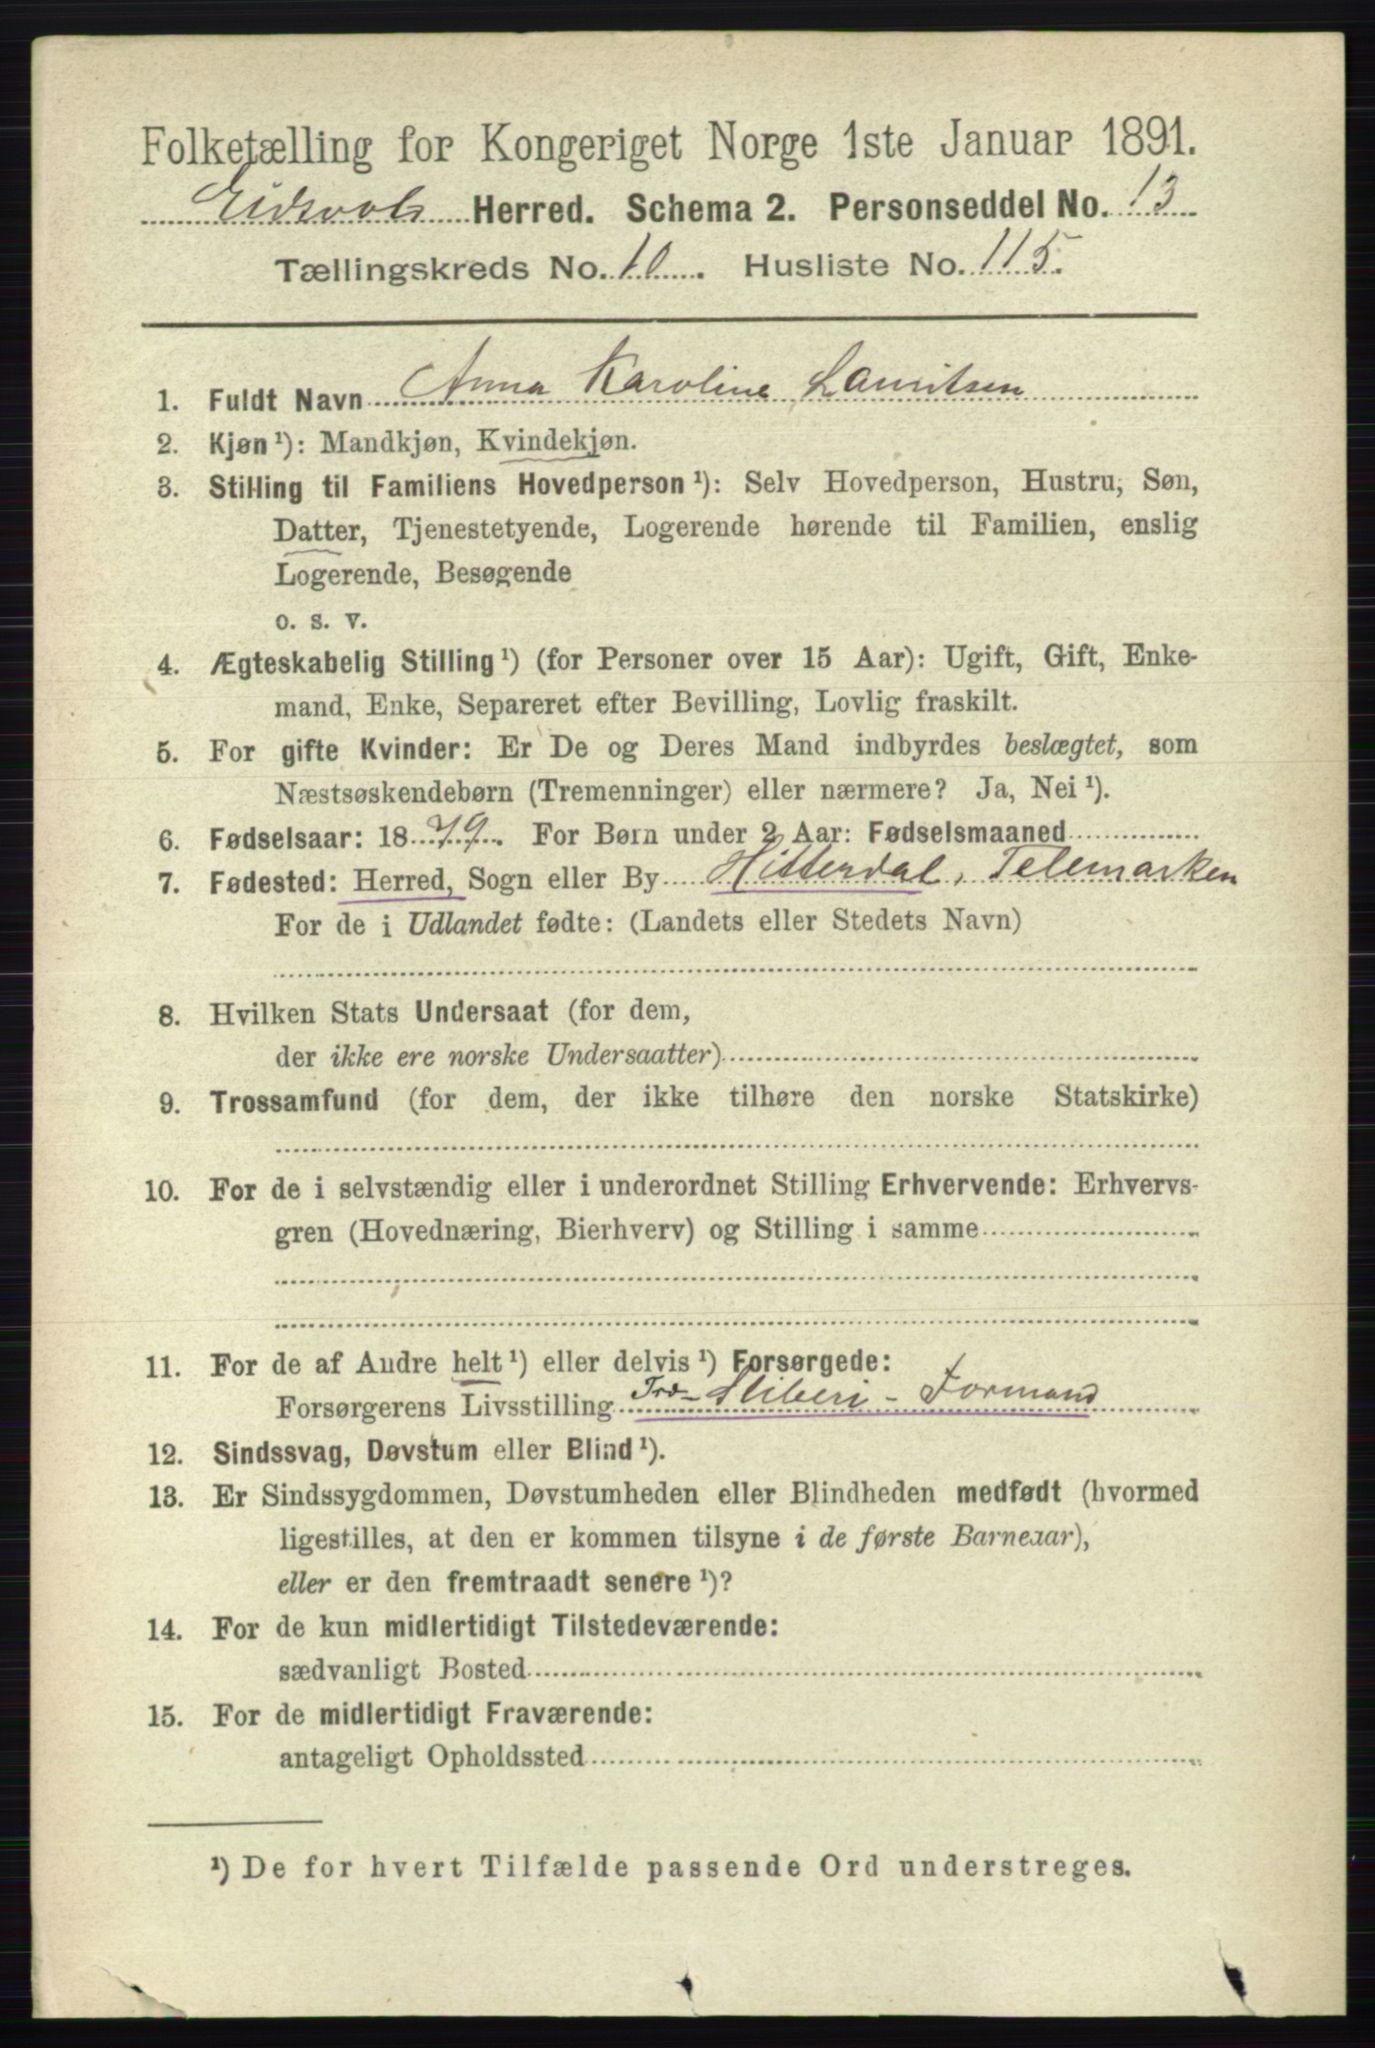 Folketælling for Kongeriget Norge 1ste Januar 1891.
Eidsvols Herred. Schema 2. Personseddel No. 13
Tællingskreds No. 10. Husliste No. 115.
1. Fuldt Navn Anna Karoline Lauritsen
2. Kjøn ¹): Mandkjøn, Kvindekjøn.
3. Stilling til Familiens Hovedperson ¹): Selv Hovedperson, Hustru, Søn,
Datter, Tjenestetyende, Logerende hørende til Familien, enslig
Logerende, Besøgende
o. s. v.
4. Ægteskabelig Stilling ¹) (for Personer over 15 Aar): Ugift, Gift, Enke-
mand, Enke, Separeret efter Bevilling, Lovlig fraskilt.
5. For gifte Kvinder: Er De og Deres Mand indbyrdes beslægtet, som
Næstsøskendebørn (Tremenninger) eller nærmere? Ja, Nei ¹).
6. Fødselsaar: 1879. For Børn under 2 Aar: Fødselsmaaned
7. Fødested: Herred, Sogn eller By Hitterdal, Telemarken
For de i Udlandet fødte: (Landets eller Stedets Navn)
8. Hvilken Stats Undersaat (for dem,
der ikke ere norske Undersaatter)
9. Trossamfund (for dem, der ikke tilhøre den norske Statskirke)
10. For de i selvstændig eller i underordnet Stilling Erhvervende: Erhvervs-
gren (Hovednæring, Bierhverv) og Stilling i samme
11. For de af Andre helt ¹) eller delvis ¹) Forsørgede:
Forsørgerens Livsstilling Træ- Sliberi - Formand
12. Sindssvag, Døvstum eller Blind ¹).
13. Er Sindssygdommen, Døvstumheden eller Blindheden medfødt (hvormed
ligestilles, at den er kommen tilsyne i de første Barneaar),
eller er den fremtraadt senere ¹)?
14. For de kun midlertidigt Tilstedeværende:
sædvanligt Bosted
15. For de midlertidigt Fraværende:
antageligt Opholdssted
¹) De for hvert Tilfælde passende Ord understreges.